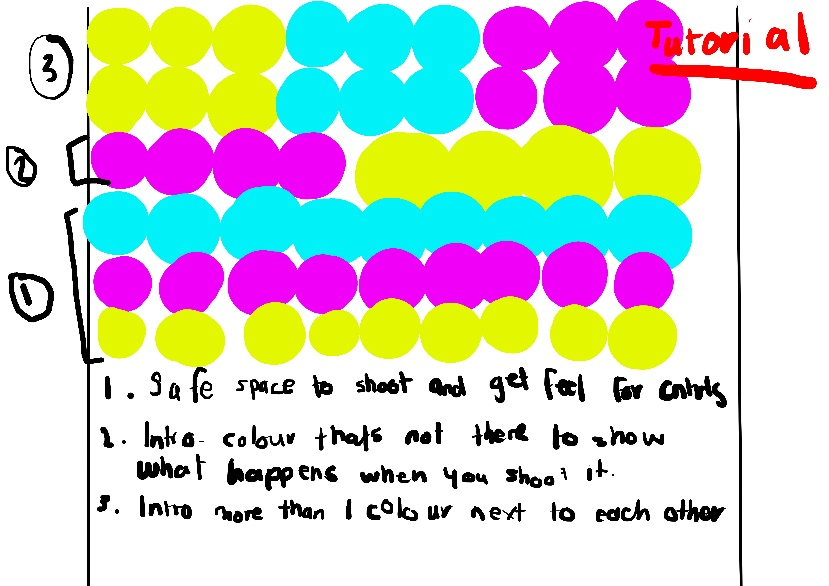 Tutorial
3
2
1
1. Safe space to shoot and get feel for cntrls
2. Intro colour thats not there to show
what happens when you shoot it.
3. Intro more than 1 colour next to each other